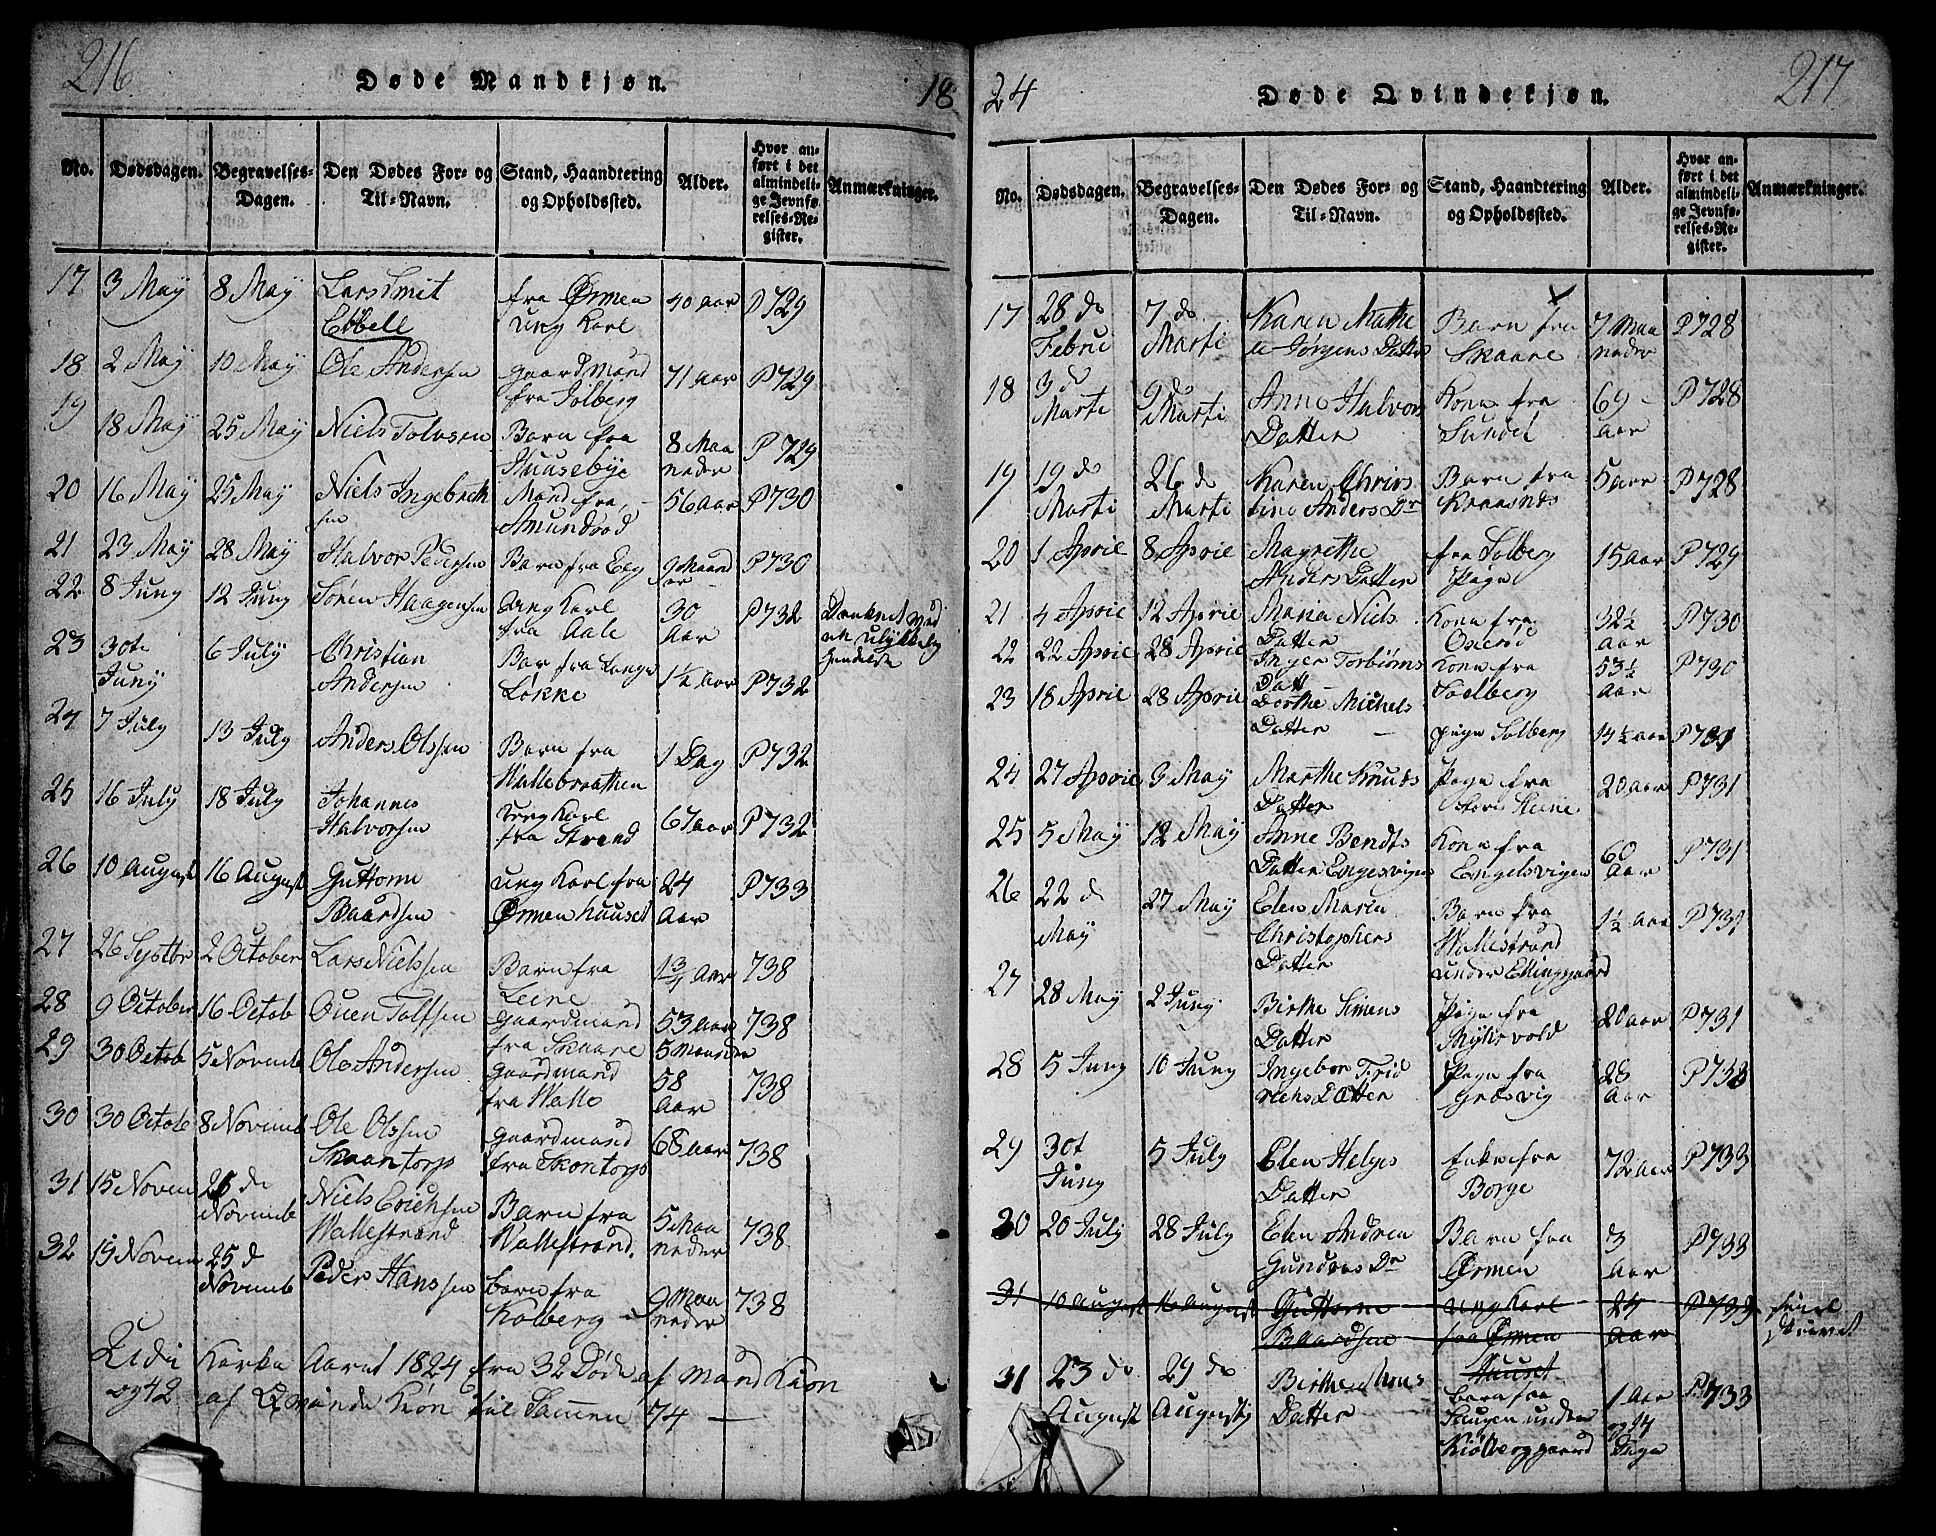 216
Døde Mandkjøn.
18
No. Dødsdagen. Begravelses-Dagen. Den Dødes For- og Til-Navn. Stand, Haandtering og Opholdssted. Alder. Hvor anført i det almindelige Jevnførelses-Register. Anmærkninger.
17 3 May 8 May Lars Smit Ebbell fra Ørmen ung Karl 40 aar P 729
18 2 May 10 May Ole Andersen gaardmand fra Solberg 71 aar P 729
19 18 May 25 May Niels Tolvsen Barn fra Huusebye 8 Maaneder P 729
20 16 May 25 May Niels Ingebrethsen Mand fra Amundrød 56 aar P 730
21 23 May 28 May Halvor Pedersen Barn fra Eeg 9 Maander P 730
22 8 Juny 12 Juny Søren Haagensen Ung Karl fra Aale 30 Aar P 732 Druknet ved en ulykkelig Hendelse
23 30te Juny 6 July Christian Andersen Bar fra Lange Løkke 1½ Aar P 732
24 7 July 13 July Anders Olssen Barn fra Wallebraathen 1 Dag P 732
25 16 July 18 July Johannes Halvorsen Ung Karl fra Strand 67 aar P 732
26 10 August 16 August Guttorm Baardsen ung Karl fra Ørmen huuset 24 Aar P 733
27 26 Septbr 2 October Lars Nielssen Barn fra Leine 1¾ Aar 738
28 9 October 16 Octob Ouen Tolfsen gaardmand fra Skaare 53 aar 5 Maander 738
29 30 Octob 5 Novemb Ole Andersen gaardmand fra Walle 58 Aar 738
30 30 Octob 8 Novemb Ole Olssen Skaantorp gaardmand fra Skontorp 68 aar 738
31 15 Novem 25 de Novemb Niels Erichsen Wallestrand Barn fra Wallestrand. 5 Maaneder 738
32 19 Novem 25 d Novemb Peder Hanssen barn fra Kolberg 9 Maaneder 738
Kirke Aaret 1824 fra 32 Døde af Mand Kiøn
og 42 af Qvinde Kiøn til Sammen 74 —
24
Døde Qvindekjøn.
217
No. Dødsdagen. Begravelses-Dagen. Den Dødes For- og Til-Navn. Stand, Haandtering og Opholdssted. Alder. Hvor anført i det almindelige Jevnførelses-Register. Anmærkninger.
17 28 de Februe 7 de Marti Karen Mathe Jørgens Datter Barn fra Skaare 7 Maaneder P 728
18 3 de Marti 9 de Marti Anne Halvors Datter Kone fra Sundet 69 aar P 728
19 19 de Marti 26 d Marti Karen Christine Anders Dr Barn fra 5 aar P 728
20 1 Aprile 8 Aprile Magrethe Anders Datter fra Solberg Pige 15 aar P 729
21 4 Aprile 12 Aprile Maria Niels Datter Kone fra 32½ aar P 730
22 22 Aprile 28 Aprile Inger Torbiørns Datt Kone fra Soelberg 53½ aar P 730
23 18 Aprile 28 Aprile Dorthe Michels Datter pige Solberg 14½ aar P 731
24 27 Aprile 9 May Marthe Knuds Datter Pige fra 20 aar P 731
25 5 May 12 May Anne Bendts Datter Engesvigen Kone fra Engelsvigen 60 Aar P 731
26 22 de May 27 May Elen Maria Christophers Datter Barn fra Wallestrand under Ellinggaard 1½ aar P 731
27 28 May 2 Juny Birthe Simens Datter Pige fra 20 aar P 731
28 5 Juny 10 Juny Ingebor Fridrichs Datter Pige fra Græsvig 28 Aar P 733
29 30t Juny 5 July Elen Helges Datter Enke fra Borge 72 aar P 733
30 20 July 28 July Elen Andrea Gunders Dr Barn fra Ørmen 3 Aar P 733
31 10 August 16 August Guttorm Baardsen ung Karl fra Ørmen Huuset 24 Aar P 733
31 23 de August 29 de August Birthe Mons Datter Barn fra Haugen under Kiølberggaard 1 Aar og 14 Dage P 733